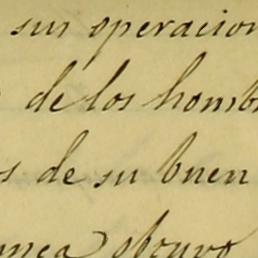 sus operacion
de los homb
s de su buen
nunca obtuvo